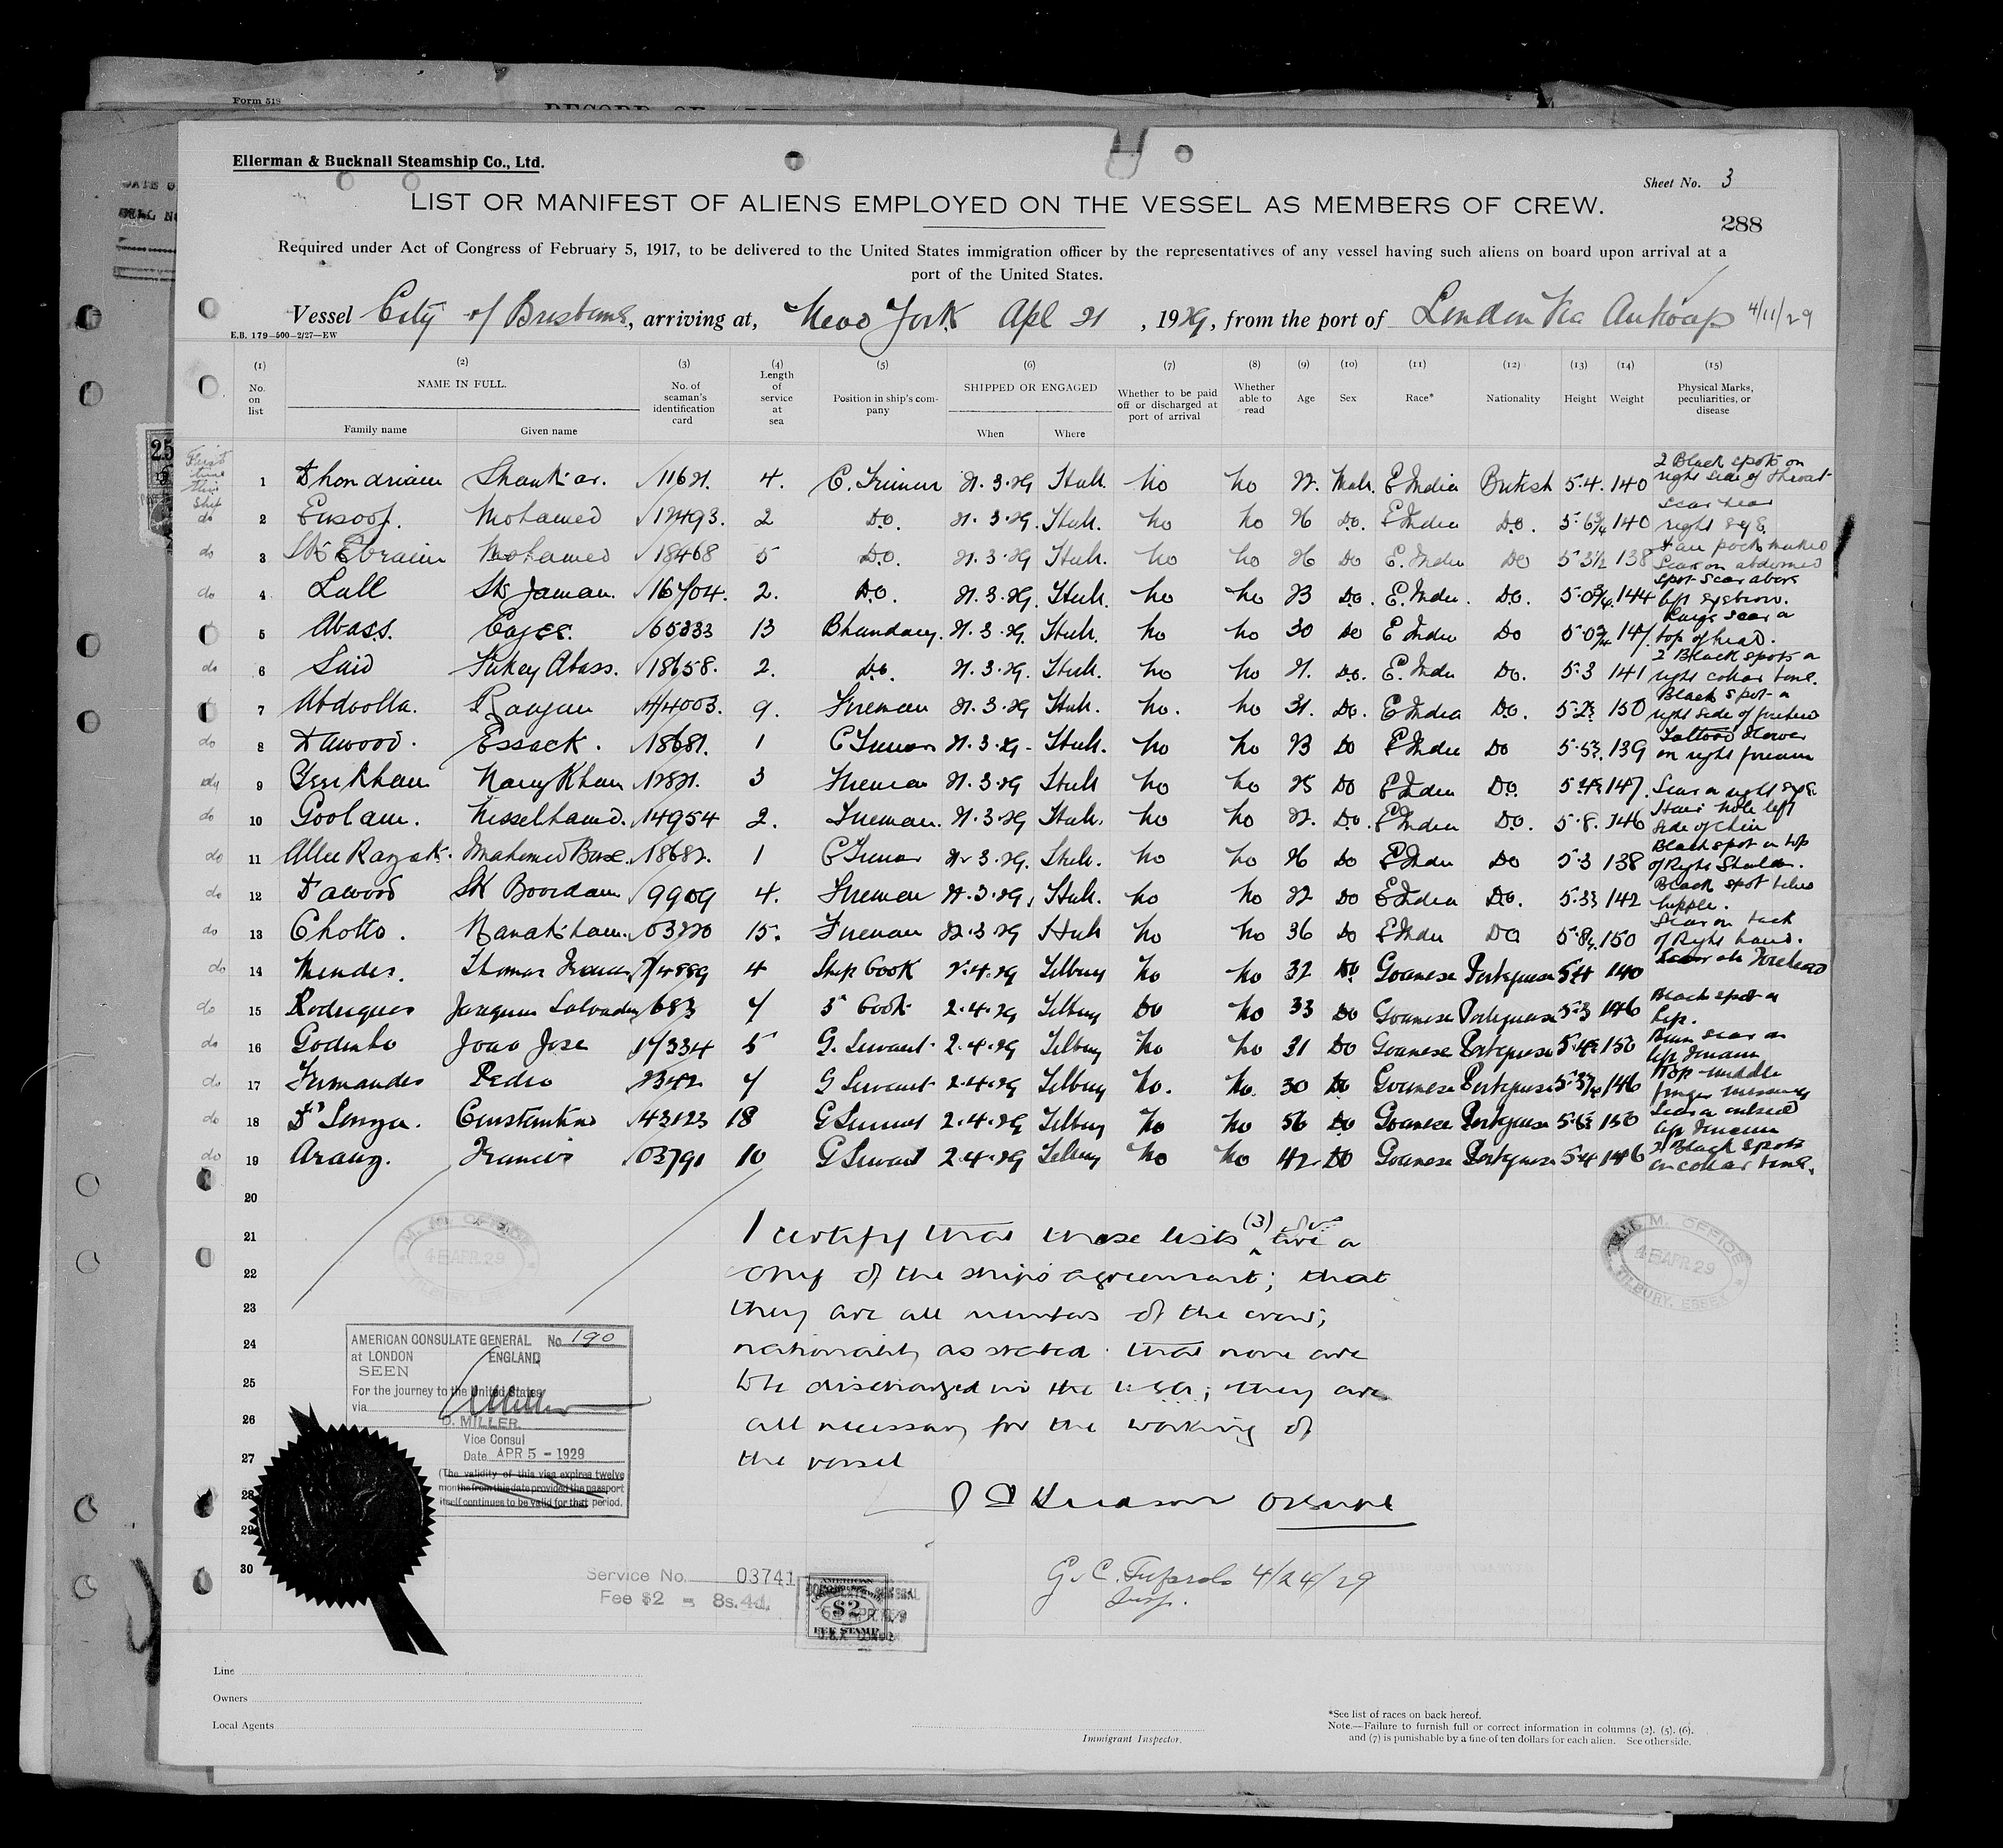 Form 518
RECORD OF
Ellerman & Bucknall Steamship Co., Ltd.
Sheet No. 3
LIST OR MANIFEST OF ALIENS EMPLOYED ON THE VESSEL AS MEMBERS OF CREW.
288
Required under Act of Congress of February 5, 1917, to be delivered to the United States immigration officer by the representatives of any vessel having such aliens on board upon arrival at a
port of the United States.
Vessel City of Brisbane, arriving at, New York Apl 21, 1929, from the port of London Via Antwerp 4/11/29
E.B. 179—500—2/27—EW
(1) (2) (3) (4) (5) (6) (7) (8) (9) (10) (11) (12) (13) (14) (15)
No. on list NAME IN FULL. Family name Given name No. of seaman's identification card Length of service at sea Position in ship's company SHIPPED OR ENGAGED When Where Whether to be paid off or discharged at port of arrival Whether able to read Age Sex Race* Nationality Height Weight Physical Marks, peculiarities, or disease
First time this ship 1 Shankar. 11621. 4. 21.3.29 Hull no no 22. Male. E India British 5.4. 140 2 Black spots on right side of throat
do 2 Eusoof. Mohamed 12493. 2 Do. 21.3.29. Hull. no no 26 Do. E India Do. 140 Scar near right eye
do 3 Sk Ebraim Mohamed 18468 5 Do. 21.3.29 Hull no no 26 Do E. India Do 5.3½ 138 Scar on abdomen
do 4 Lall Sk Jaman. 2. Do. 21.3.29. Hull. no no 23 Do. E. India. Do. 144 Spot scar above left eyebrow.
5 Abass. 65333 13 Bhandary. 21.3.29. Hull. no no 30 Do E India Do 147. Large scar a top of head.
do 6 Said Fukey Abass. 18658. 2. Do. 21.3.29. Hull. no no 21. Do. E. India Do. 5.3 141 2 Black spots a right collar bone.
7 Abdoolla. 9. Fireman 21.3.29 Hull. no. no 31. Do. E India Do. 150 Black spot a right side of forehead
do 8 Dawood. Essack. 18681. 1 21.3.29. Hull. no no 23 Do E India Do 139 Tattooed flower on right forearm
9 3 Fireman 21.3.29 Hull no no 25 Do E India Do. 147. Scar a right eye.
do 10 Goolam. 14954 2. Fireman. 21.3.29 Hull. no no 22. Do. E India Do. 5.8. 146 Hair mole left side of chin
do 11 18682. 1 21.3.29. Hull. no no 26 Do E India Do 5.3 138 Black spot on top of Right Shoulder.
do 12 Dawood SK Boordam 9909 4. Fireman 21.3.29, Hull. no no 22 Do E India Do. 142 Black spot below nipple.
do 13 Chotto. 03220 15. Fireman 21.3.29 Hull no no 36 Do E India Do 150 Scar on back of Right hand.
do 14 Mendes. Thomas 4 Ship Cook 2.4.29 Tilbury no no 32 Do Goanese Portuguese 5.4 140 Scar on Forehead
do 15 Rodrigues Joaquim Salvador 683 7 Cook 2.4.29 Tilbury Do no 33 Do Goanese Portuguese 5.3 146 Black spot a lip.
do 16 Godinho Joao Jose 5 G. Servant. 2.4.29 Tilbury no no 31 Do Goanese Portuguese 150 Burn scar on left forearm
do 17 Fernandes Pedro 2342 7 G Servant 2.4.29 Tilbury no. no. 30 Do Goanese Portuguese 146 Top middle finger missing
do 18 D'Souza. Constantino 43123 18 G Servant 2.4.29 Tilbury no no 56 Do Goanese Portuguese 150 Scar a outside left forearm
do 19 Francis 03791 10 G Servant 2.4.29 Tilbury no no 42 Do Goanese Portuguese 5.4 146 2 Black spots on collar bone.
20
21 I certify that these lists (3) are a
22 copy of the ship's agreement; that
23 they are all members of the crew;
24 nationality as stated. that none are
25 to be discharged in the U.S.A; they are
26 all necessary for the working of
27 the vessel
28
29
30
M.M. OFFICE
4 APR 29
TILBURY. ESSEX
M.M. OFFICE
4 APR 29
TILBURY. ESSEX
AMERICAN CONSULATE GENERAL No. 190
at LONDON ENGLAND
SEEN
For the journey to the United States
via
D. MILLER.
Vice Consul
Date APR 5 - 1929
(The validity of this visa expires twelve
months from this date provided the passport
itself continues to be valid for that period.
Service No. 03741
Fee $2 = 8s. 4d.
AMERICAN
$2
FEE STAMP
4/24/29
Insp.
Line
Owners
Local Agents
Immigrant Inspector.
*See list of races on back hereof.
Note.—Failure to furnish full or correct information in columns (2), (5), (6),
and (7) is punishable by a fine of ten dollars for each alien. See other side.